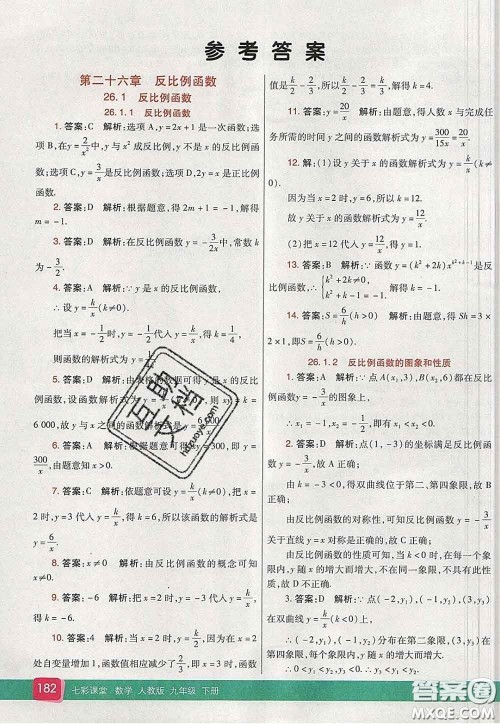 参考答案
第二十六章 反比例函数
26.1 反比例函数
26.1.1 反比例函数
1. 答案:C 解析:选项A,y=2x+1是一次函数;选
项B,在y=2/x²中,x的次数是2,y不是x的反比例函数;
选项C,y=3/(5x)是反比例函数;选项D,y=2x是正比例
函数.
2. 答案:D 解析:根据题意,得2m+1=-1,解得
m=-1.
3. 答案:D 解析:在反比例函数y=-3/(2x)中,常数k
为-3/2.
4. 答案:A 解析:∵y是x的反比例函数,
∴设y=k/x(k≠0).
把当x=-1/2时,y=-1/2代入y=k/x,得k=1/4,
则函数的解析式为y=
6 000,故y与x之间的函数解析式为y=6 000/x.
6. 答案:A
300/x,由题意知x>0.
7. 答案:A 解析:依题意可设y=k/x(k≠0).把x=
2时,y=3代入,得k=6,所以该函数的解析式是
y=6/x.
8. 答案:x≠0 解析:由反比例函数的概念可知
x≠0.
9. 答案:-6 解析:把x=2,y=-3代入y=k/x,得
k=-6.
10. 答案:4 解析:由题意知k>0,∵当1≤x≤2时,y
随自变量x的增大而减小,函数值相应减少了2/3,∴k的
值是k/2-k/3=2/3,所以k/2-k/3=2/3,解得k=4.
11. 答案:y=20/x 解析:由题意,得人数x与完成任
务所需的时间y之间的函数解析式为y=300/(15x)=20/x.
12. 解:(1)设y关于x的函数解析式为y=k/x(k≠0).
因为当x=2时,y=6,所以k=12.
故y关于x的函数解析式为y=12/x.
(2)把x=12代入y=12/x,得y=1.
13. 答案:B 解析:∵函数y=(k²+2k)x^(k²+k-1)是反
比例函数,∴{k²+2k≠0, k²+k-1=-1, 解得k=-1.
14. 答案:S=6/h(h>0) 解析:由题意,得Sh=3×
2×1,则S=6/h(h>0).
26.1.2 反比例函数的图象和性质
1. 答案:A 解析:∵点A(x₁,3),B(x₂,6)都在反比
例函数y=-3/x的图象上,
∴x₁<x₂<0.
2. 答案:D 解析:点(1,-3)的坐标满足反比例函
数y=-3/x,故A正确;
由k=-3<0,得双曲线位于第二、第四象限,故B
正确;
由反比例函数的对称性,可知反比例函数y=-3/x
关于直线y=x对称是正确的,故C正确;
由反比例函数的性质可知,当k<0时,在每一个象
限内,y随x的增大而增大,不在同一象限,不具有y随x
的增大而增大,故D错误.
3. 答案:D 解析:∵点(-2,y₁),(-1,y₂),(3,y₃)
在双曲线y=k/x(k<0)上,
∴(-2,y₁),(-1,y₂)分布在第二象限,(3,y₃)在
第四象限,在每个象限内,y随x的增大而增大,
∴y₃<y₁<y₂.
182 七彩课堂 数学 人教版 九年级 下册
答案圈
MXQE.COM